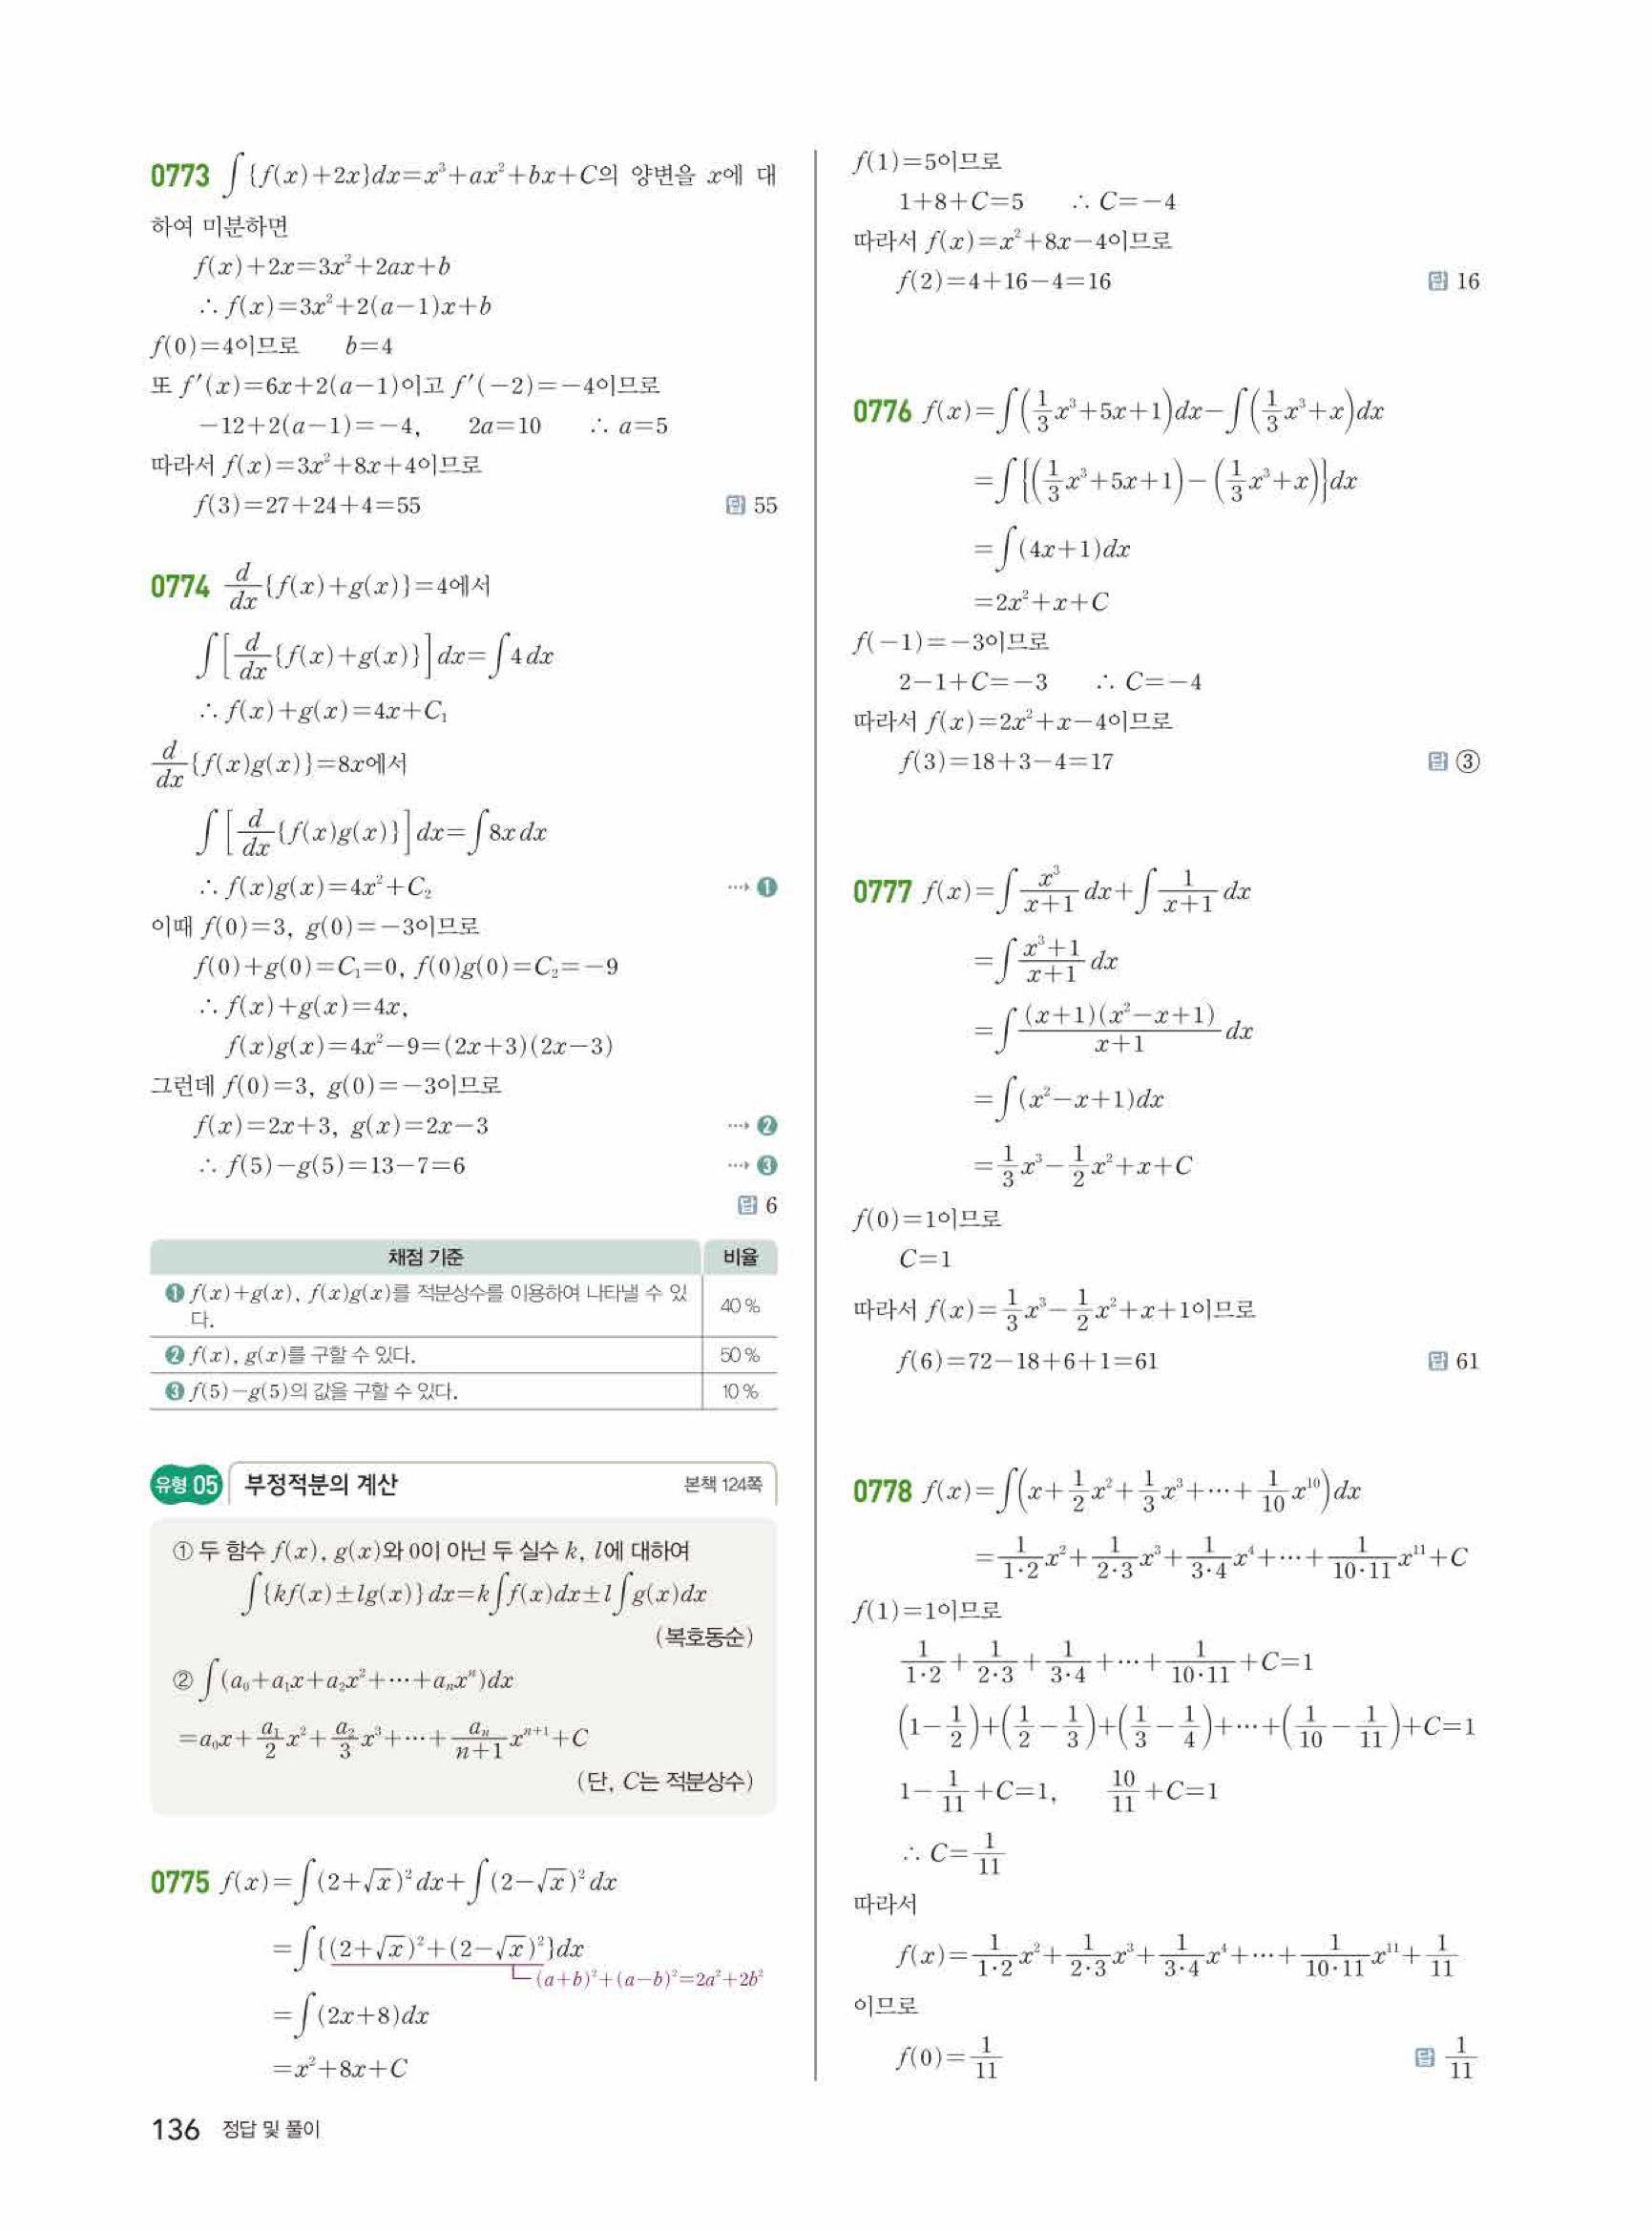 0773 ∫{f(x)+2x}dx=x³+ax²+bx+C의 양변을 x에 대
하여 미분하면
f(x)+2x=3x²+2ax+b
∴ f(x)=3x²+2(a-1)x+b
f(0)=4이므로 b=4
또 f′(x)=6x+2(a-1)이고 f′(-2)=-4이므로
-12+2(a-1)=-4, 2a=10 ∴ a=5
따라서 f(x)=3x²+8x+4이므로
f(3)=27+24+4=55 답 55
0774 d/dx{f(x)+g(x)}=4에서
∫[d/dx{f(x)+g(x)}]dx=∫4dx
∴ f(x)+g(x)=4x+C₁
d/dx{f(x)g(x)}=8x에서
∫[d/dx{f(x)g(x)}]dx=∫8xdx
∴ f(x)g(x)=4x²+C₂ ❶
이때 f(0)=3, g(0)=-3이므로
f(0)+g(0)=C₁=0, f(0)g(0)=C₂=-9
∴ f(x)+g(x)=4x,
f(x)g(x)=4x²-9=(2x+3)(2x-3)
그런데 f(0)=3, g(0)=-3이므로
f(x)=2x+3, g(x)=2x-3 ❷
∴ f(5)-g(5)=13-7=6 ❸
답 6
채점 기준 비율
❶ f(x)+g(x), f(x)g(x)를 적분상수를 이용하여 나타낼 수 있
다. 40 %
❷ f(x), g(x)를 구할 수 있다. 50 %
❸ f(5)-g(5)의 값을 구할 수 있다. 10 %
유형 05 부정적분의 계산 본책 124쪽
① 두 함수 f(x), g(x)와 0이 아닌 두 실수 k, l에 대하여
∫{kf(x)±lg(x)}dx=k∫f(x)dx±l∫g(x)dx
(복호동순)
② ∫(a₀+a₁x+a₂x²+⋯+aₙxⁿ)dx
=a₀x+a₁/2 x²+a₂/3 x³+⋯+aₙ/(n+1) xⁿ⁺¹+C
(단, C는 적분상수)
0775 f(x)=∫(2+√x)²dx+∫(2-√x)²dx
=∫{(2+√x)²+(2-√x)²}dx
(a+b)²+(a-b)²=2a²+2b²
=∫(2x+8)dx
=x²+8x+C
f(1)=5이므로
1+8+C=5 ∴ C=-4
따라서 f(x)=x²+8x-4이므로
f(2)=4+16-4=16 답 16
0776 f(x)=∫(1/3 x³+5x+1)dx-∫(1/3 x³+x)dx
=∫{(1/3 x³+5x+1)-(1/3 x³+x)}dx
=∫(4x+1)dx
=2x²+x+C
f(-1)=-3이므로
2-1+C=-3 ∴ C=-4
따라서 f(x)=2x²+x-4이므로
f(3)=18+3-4=17 답 ③
0777 f(x)=∫x³/(x+1) dx+∫1/(x+1) dx
=∫(x³+1)/(x+1) dx
=∫(x+1)(x²-x+1)/(x+1) dx
=∫(x²-x+1)dx
=1/3 x³-1/2 x²+x+C
f(0)=1이므로
C=1
따라서 f(x)=1/3 x³-1/2 x²+x+1이므로
f(6)=72-18+6+1=61 답 61
0778 f(x)=∫(x+1/2 x²+1/3 x³+⋯+1/10 x¹⁰)dx
=1/(1·2) x²+1/(2·3) x³+1/(3·4) x⁴+⋯+1/(10·11) x¹¹+C
f(1)=1이므로
1/(1·2)+1/(2·3)+1/(3·4)+⋯+1/(10·11)+C=1
(1-1/2)+(1/2-1/3)+(1/3-1/4)+⋯+(1/10-1/11)+C=1
1-1/11+C=1, 10/11+C=1
∴ C=1/11
따라서
f(x)=1/(1·2) x²+1/(2·3) x³+1/(3·4) x⁴+⋯+1/(10·11) x¹¹+1/11
이므로
f(0)=1/11 답 1/11
136 정답 및 풀이